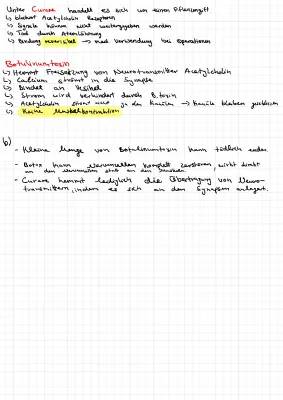 Unter Curare handelt es sich um einen Pflanzengift
↳ blockiert Acetylcholin Rezeptoren
↳ Signale können nicht weitergegeben werden
↳ Tod durch Atemlähmung
↳ Bindung reversibel → med. Verwendung bei Operationen
Botulinumtoxin
↳ Hemmt Freisetzung von Neurotransmitter Acetylcholin
↳ Calcium strömt in die Synapse
↳ Bindet an Vesikel
↳ Strom wird verhindert durch B.toxin
↳ Acetylcholin strömt nicht in den Kanäle → Kanäle bleiben geschlossen
↳ Keine Muskelkontraktion
b)
- Kleine Menge von Botulinumtoxin kann tödlich enden
- Botox kann Nervenzellen komplett zerstören, wirkt direkt
an den
- Curare hemmt lediglich die Übertragung von Neuro-
transmittern, indem es sich an den Synapsen anlagert.